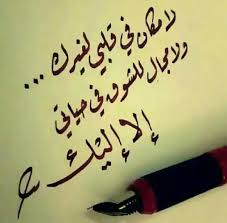 لا مكان في قلبي لغيرك ...
ولا مجال للشوق في حياتي
إلا إليك